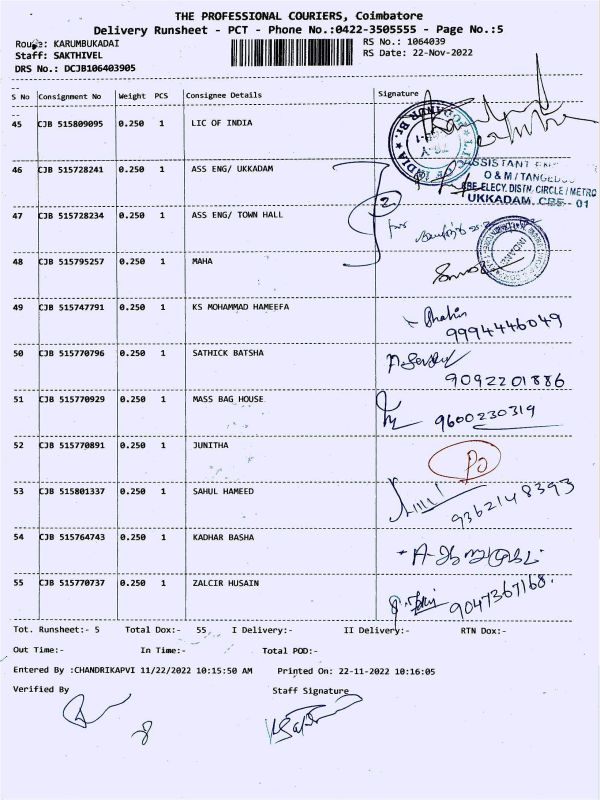 THE PROFESSIONAL COURIERS, Coimbatore
Delivery Runsheet - PCT - Phone No.:0422-3505555 - Page No.:5
Route: KARUMBUKADAI
RS No.: 1064039
Staff: SAKTHIVEL
RS Date: 22-Nov-2022
DRS No.: DCJB106403905
S No Consignment No Weight PCS Consignee Details Signature
45 CJB 515809095 0.250 1 LIC OF INDIA
46 CJB 515728241 0.250 1 ASS ENG/ UKKADAM
ASSISTANT
O & M / TANGEDCO
CBE.ELECY.DISTN.CIRCLE / METRO
UKKADAM, CBE - 01
2
47 CJB 515728234 0.250 1 ASS ENG/ TOWN HALL
for
48 CJB 515795257 0.250 1 MAHA
49 CJB 515747791 0.250 1 KS MOHAMMAD HAMEEFA
9994446049
50 CJB 515770796 0.250 1 SATHICK BATSHA
9092201886
51 CJB 515770929 0.250 1 MASS BAG HOUSE
9600230319
52 CJB 515770891 0.250 1 JUNITHA
53 CJB 515801337 0.250 1 SAHUL HAMEED
9362148393
54 CJB 515764743 0.250 1 KADHAR BASHA
55 CJB 515770737 0.250 1 ZALCIR HUSAIN
9047367168.
Tot. Runsheet:- 5 Total Dox:- 55 I Delivery:- II Delivery:- RTN Dox:-
Out Time:- In Time:- Total POD:-
Entered By :CHANDRIKAPVI 11/22/2022 10:15:50 AM Printed On: 22-11-2022 10:16:05
Verified By Staff Signature